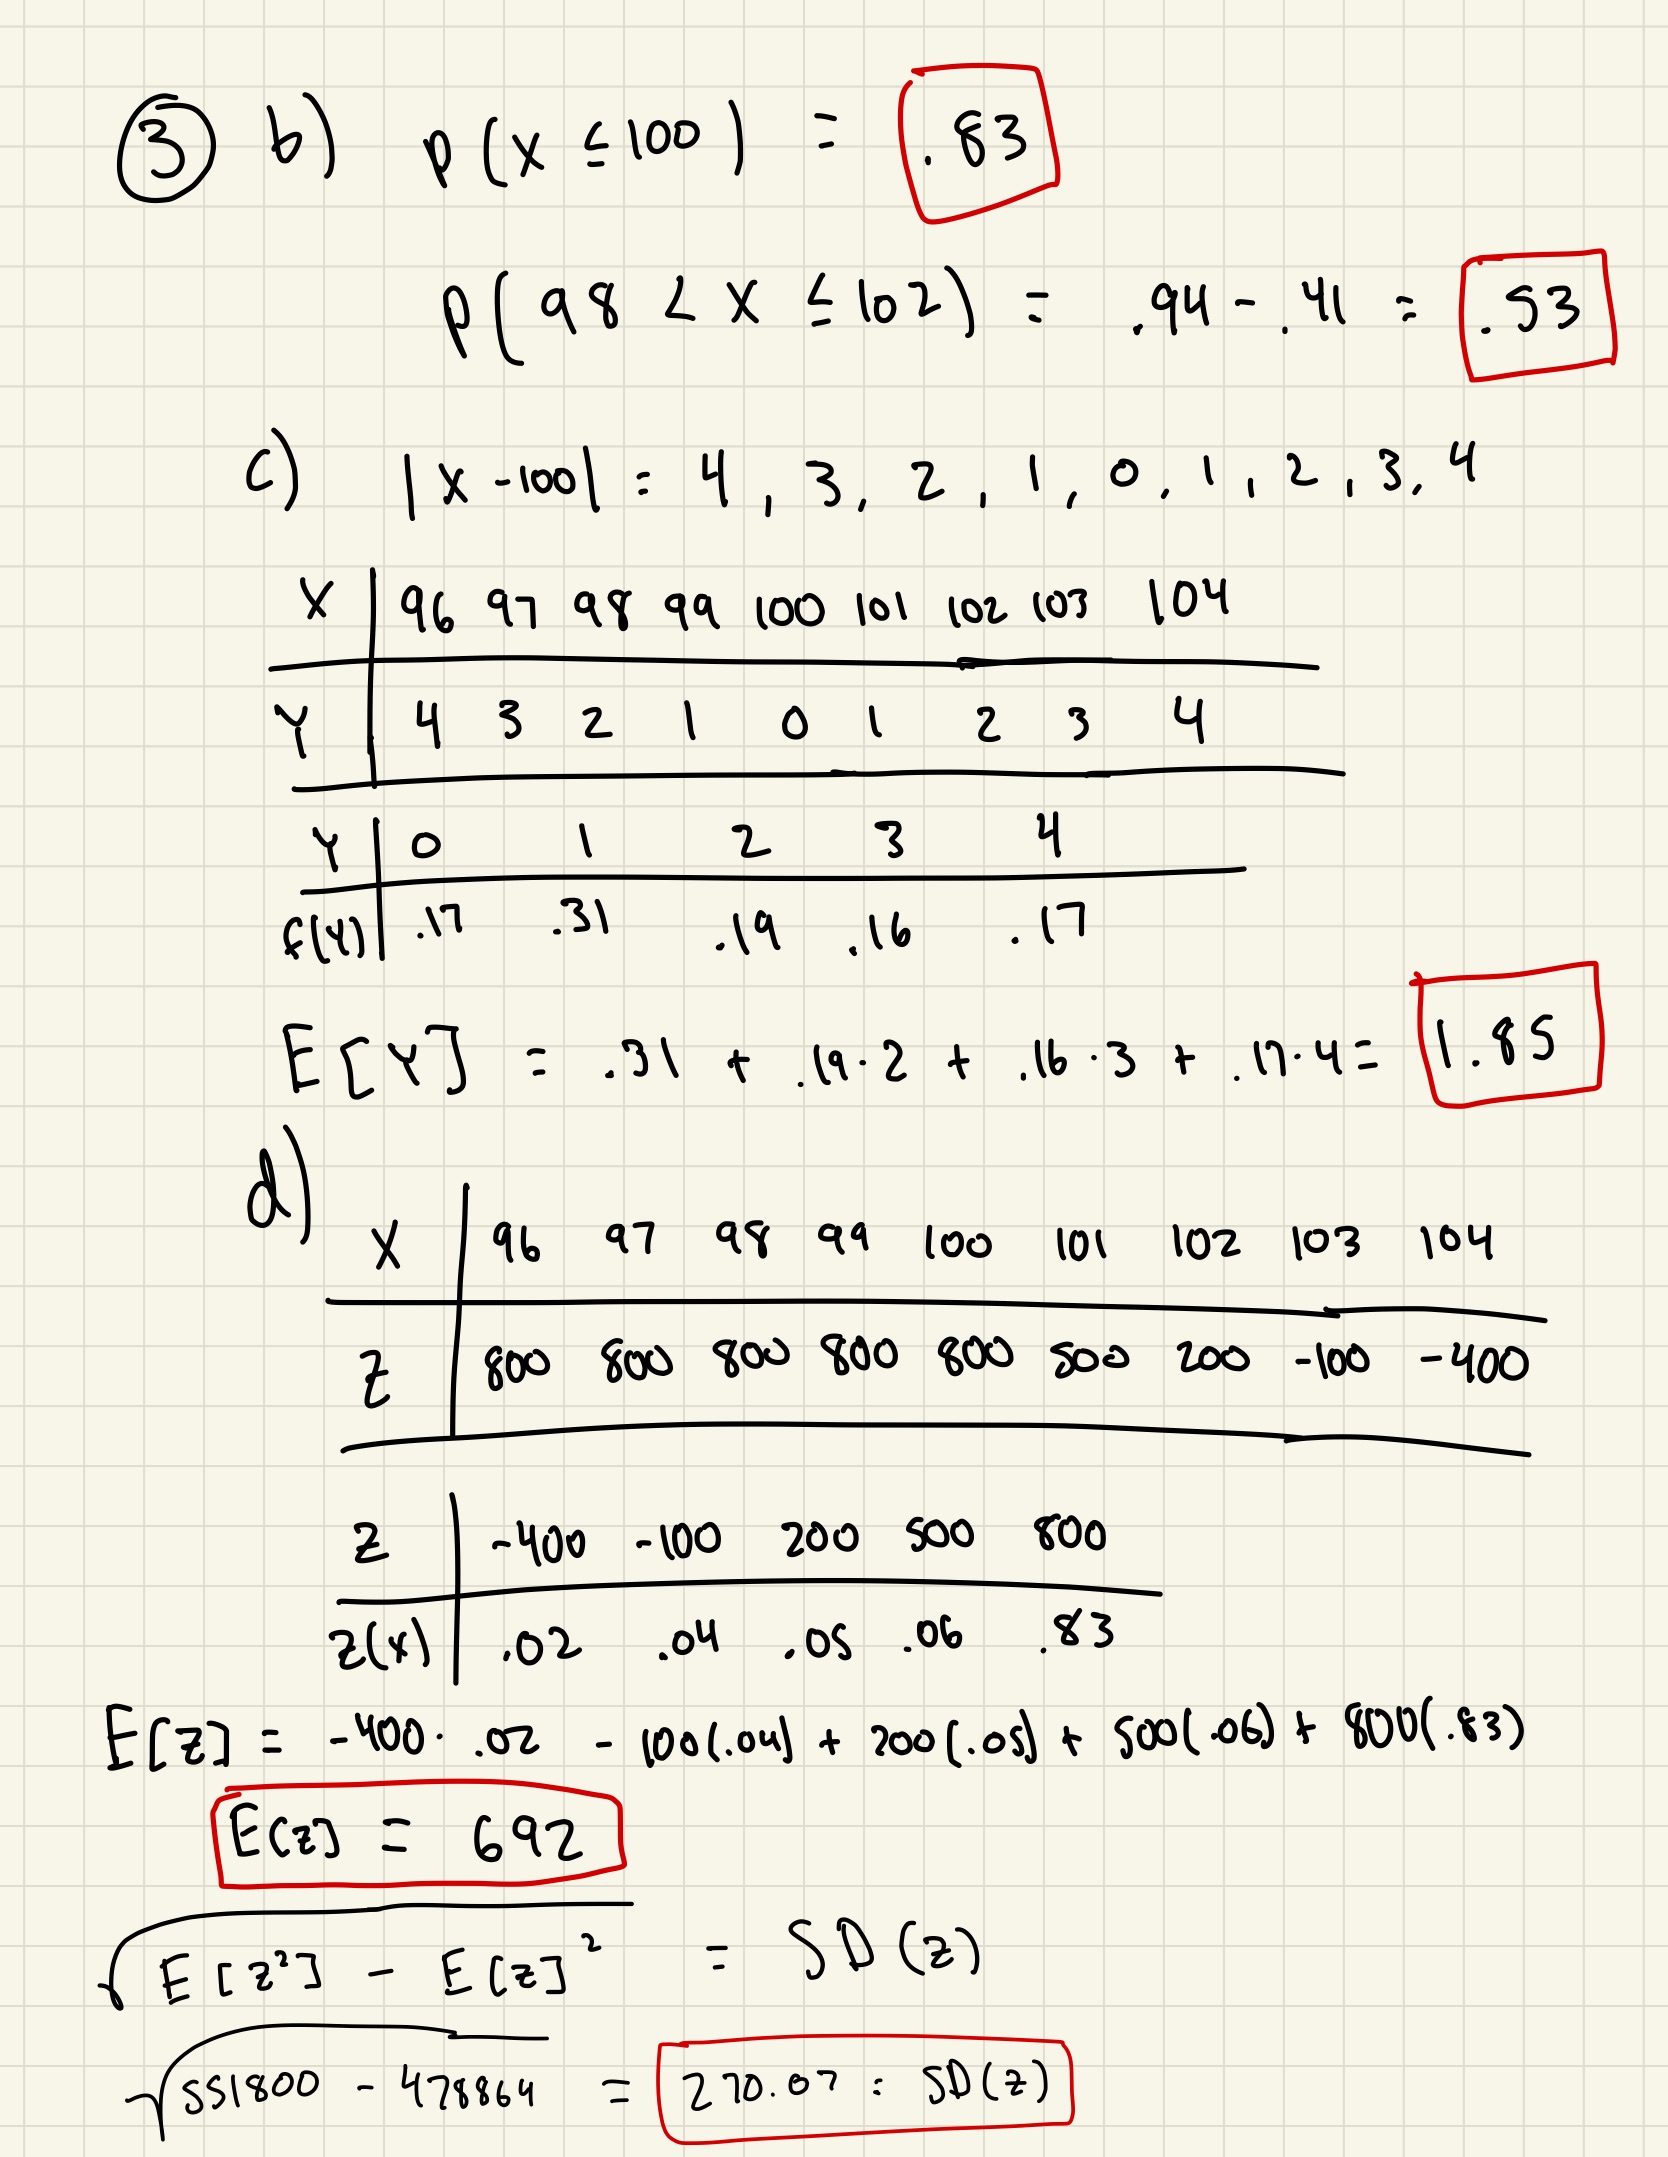 3 b) p(X ≤ 100) = .83
p(98 < X ≤ 102) = .94 - .41 = .53
c) |X - 100| = 4, 3, 2, 1, 0, 1, 2, 3, 4
X 96 97 98 99 100 101 102 103 104
Y 4 3 2 1 0 1 2 3 4
Y 0 1 2 3 4
f(Y) .17 .31 .19 .16 .17
E[Y] = .31 + .19·2 + .16·3 + .17·4 = 1.85
d)
X 96 97 98 99 100 101 102 103 104
Z 800 800 800 800 800 500 200 -100 -400
Z -400 -100 200 500 800
Z(x) .02 .04 .05 .06 .83
E[Z] = -400· .02 - 100(.04) + 200(.05) + 500(.06) + 800(.83)
E[Z] = 692
√E[Z²] - E[Z]² = SD(Z)
√551800 - 478864 = 270.07 = SD(Z)